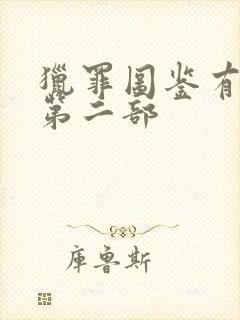 獵罪图鉴有
第二部
庫魯斯